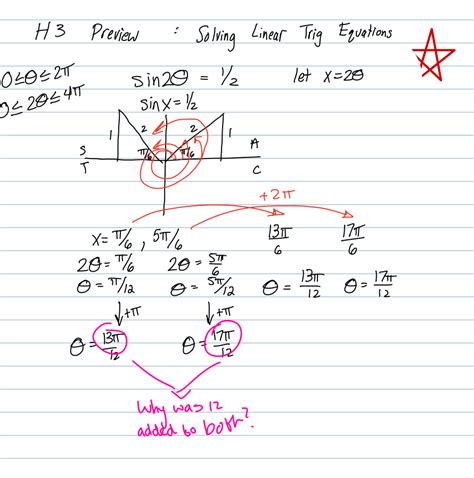 H3 Preview : Solving Linear Trig Equations
0≤θ≤2π
sin2θ = 1/2
let x=2θ
0≤2θ≤4π
sinx=1/2
1 2 2 1
S π/6 π/6 A
T C
+2π
x=π/6, 5π/6 13π/6 17π/6
2θ=π/6 2θ=5π/6
θ=π/12 θ=5π/12 θ=13π/12 θ=17π/12
↓+π ↓+π
θ=13π/12 θ=17π/12
Why was 12
added to both?